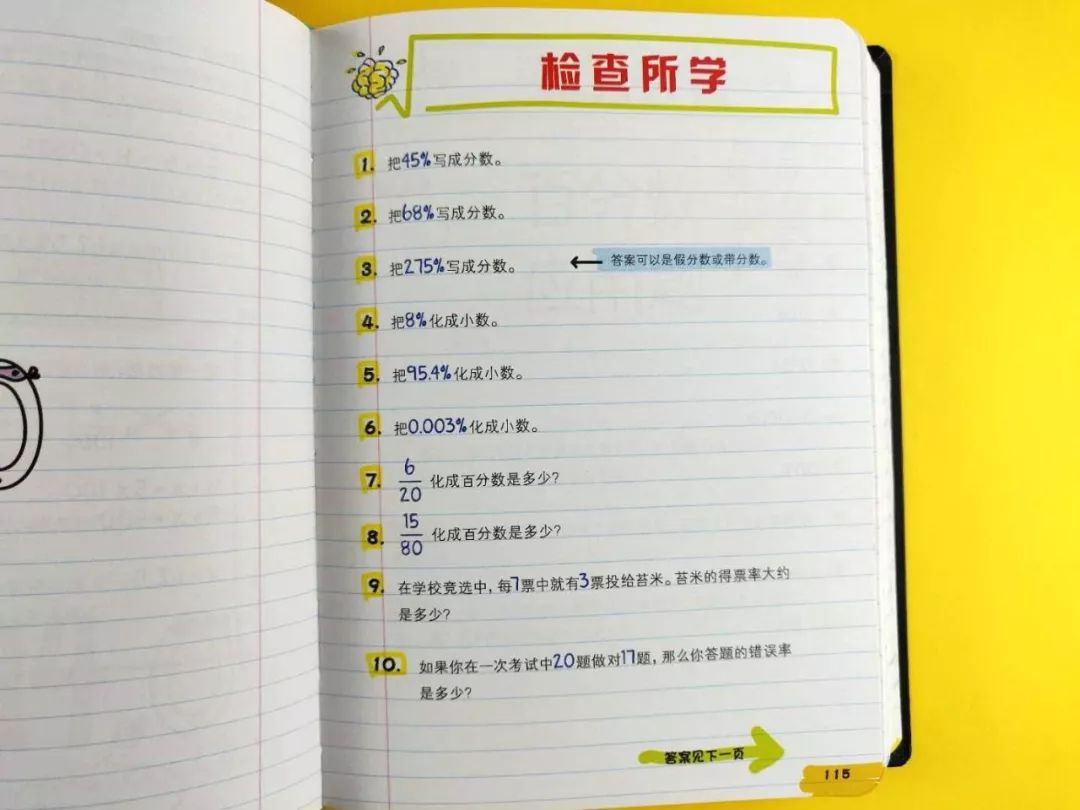 检查所学
1. 把45%写成分数。
2. 把68%写成分数。
3. 把275%写成分数。
答案可以是假分数或带分数。
4. 把8%化成小数。
5. 把95.4%化成小数。
6. 把0.003%化成小数。
7. 6/20 化成百分数是多少?
8. 15/80 化成百分数是多少?
9. 在学校竞选中, 每7票中就有3票投给苔米。苔米的得票率大约
是多少?
10. 如果你在一次考试中20题做对17题, 那么你答题的错误率
是多少?
答案见下一页
115